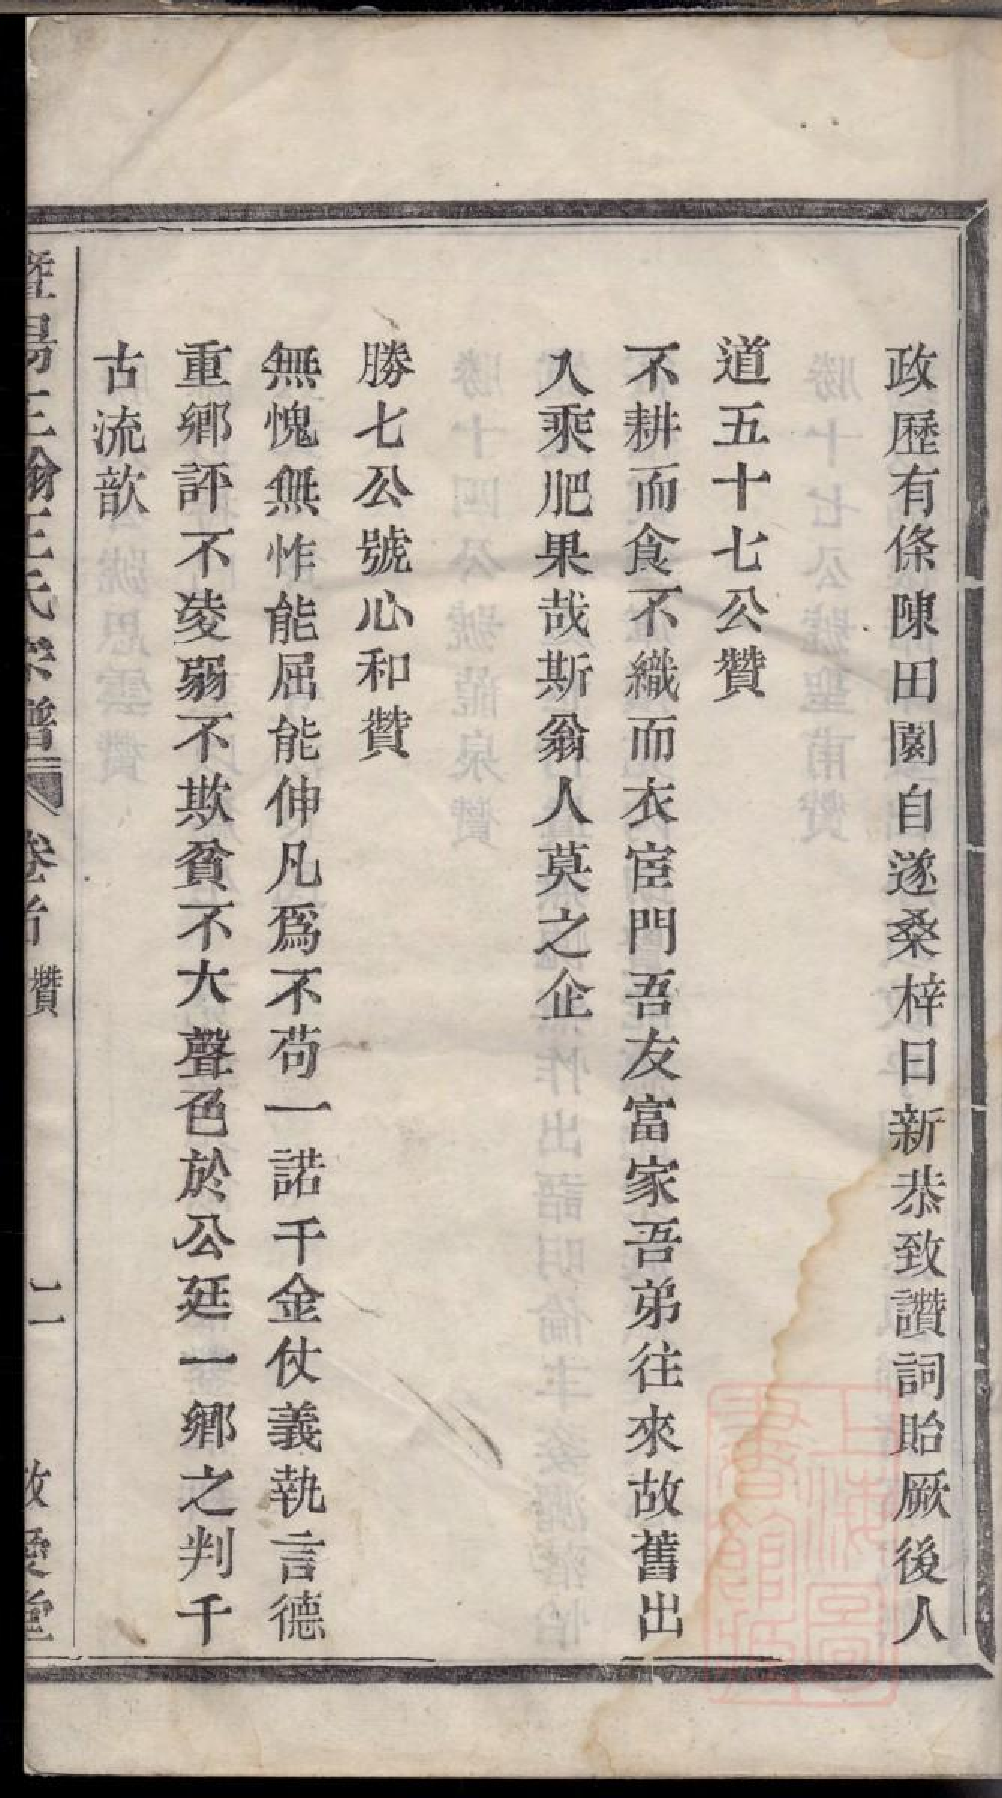 政歷有條陳田園自遂桑梓日新恭致讚詞貽厥後人
道五十七公贊
不耕而食不織而衣宦門吾友富家吾弟往來故舊出
入乘肥果哉斯翁人莫之企
勝七公號心和贊
無愧無怍能屈能伸凡爲不苟一諾千金仗義執言德
重鄉評不凌弱不欺貧不大聲色於公廷一鄉之判千
古流歆
暨陽王氏宗譜 卷首 贊 二 敬愛堂
上海圖書館藏